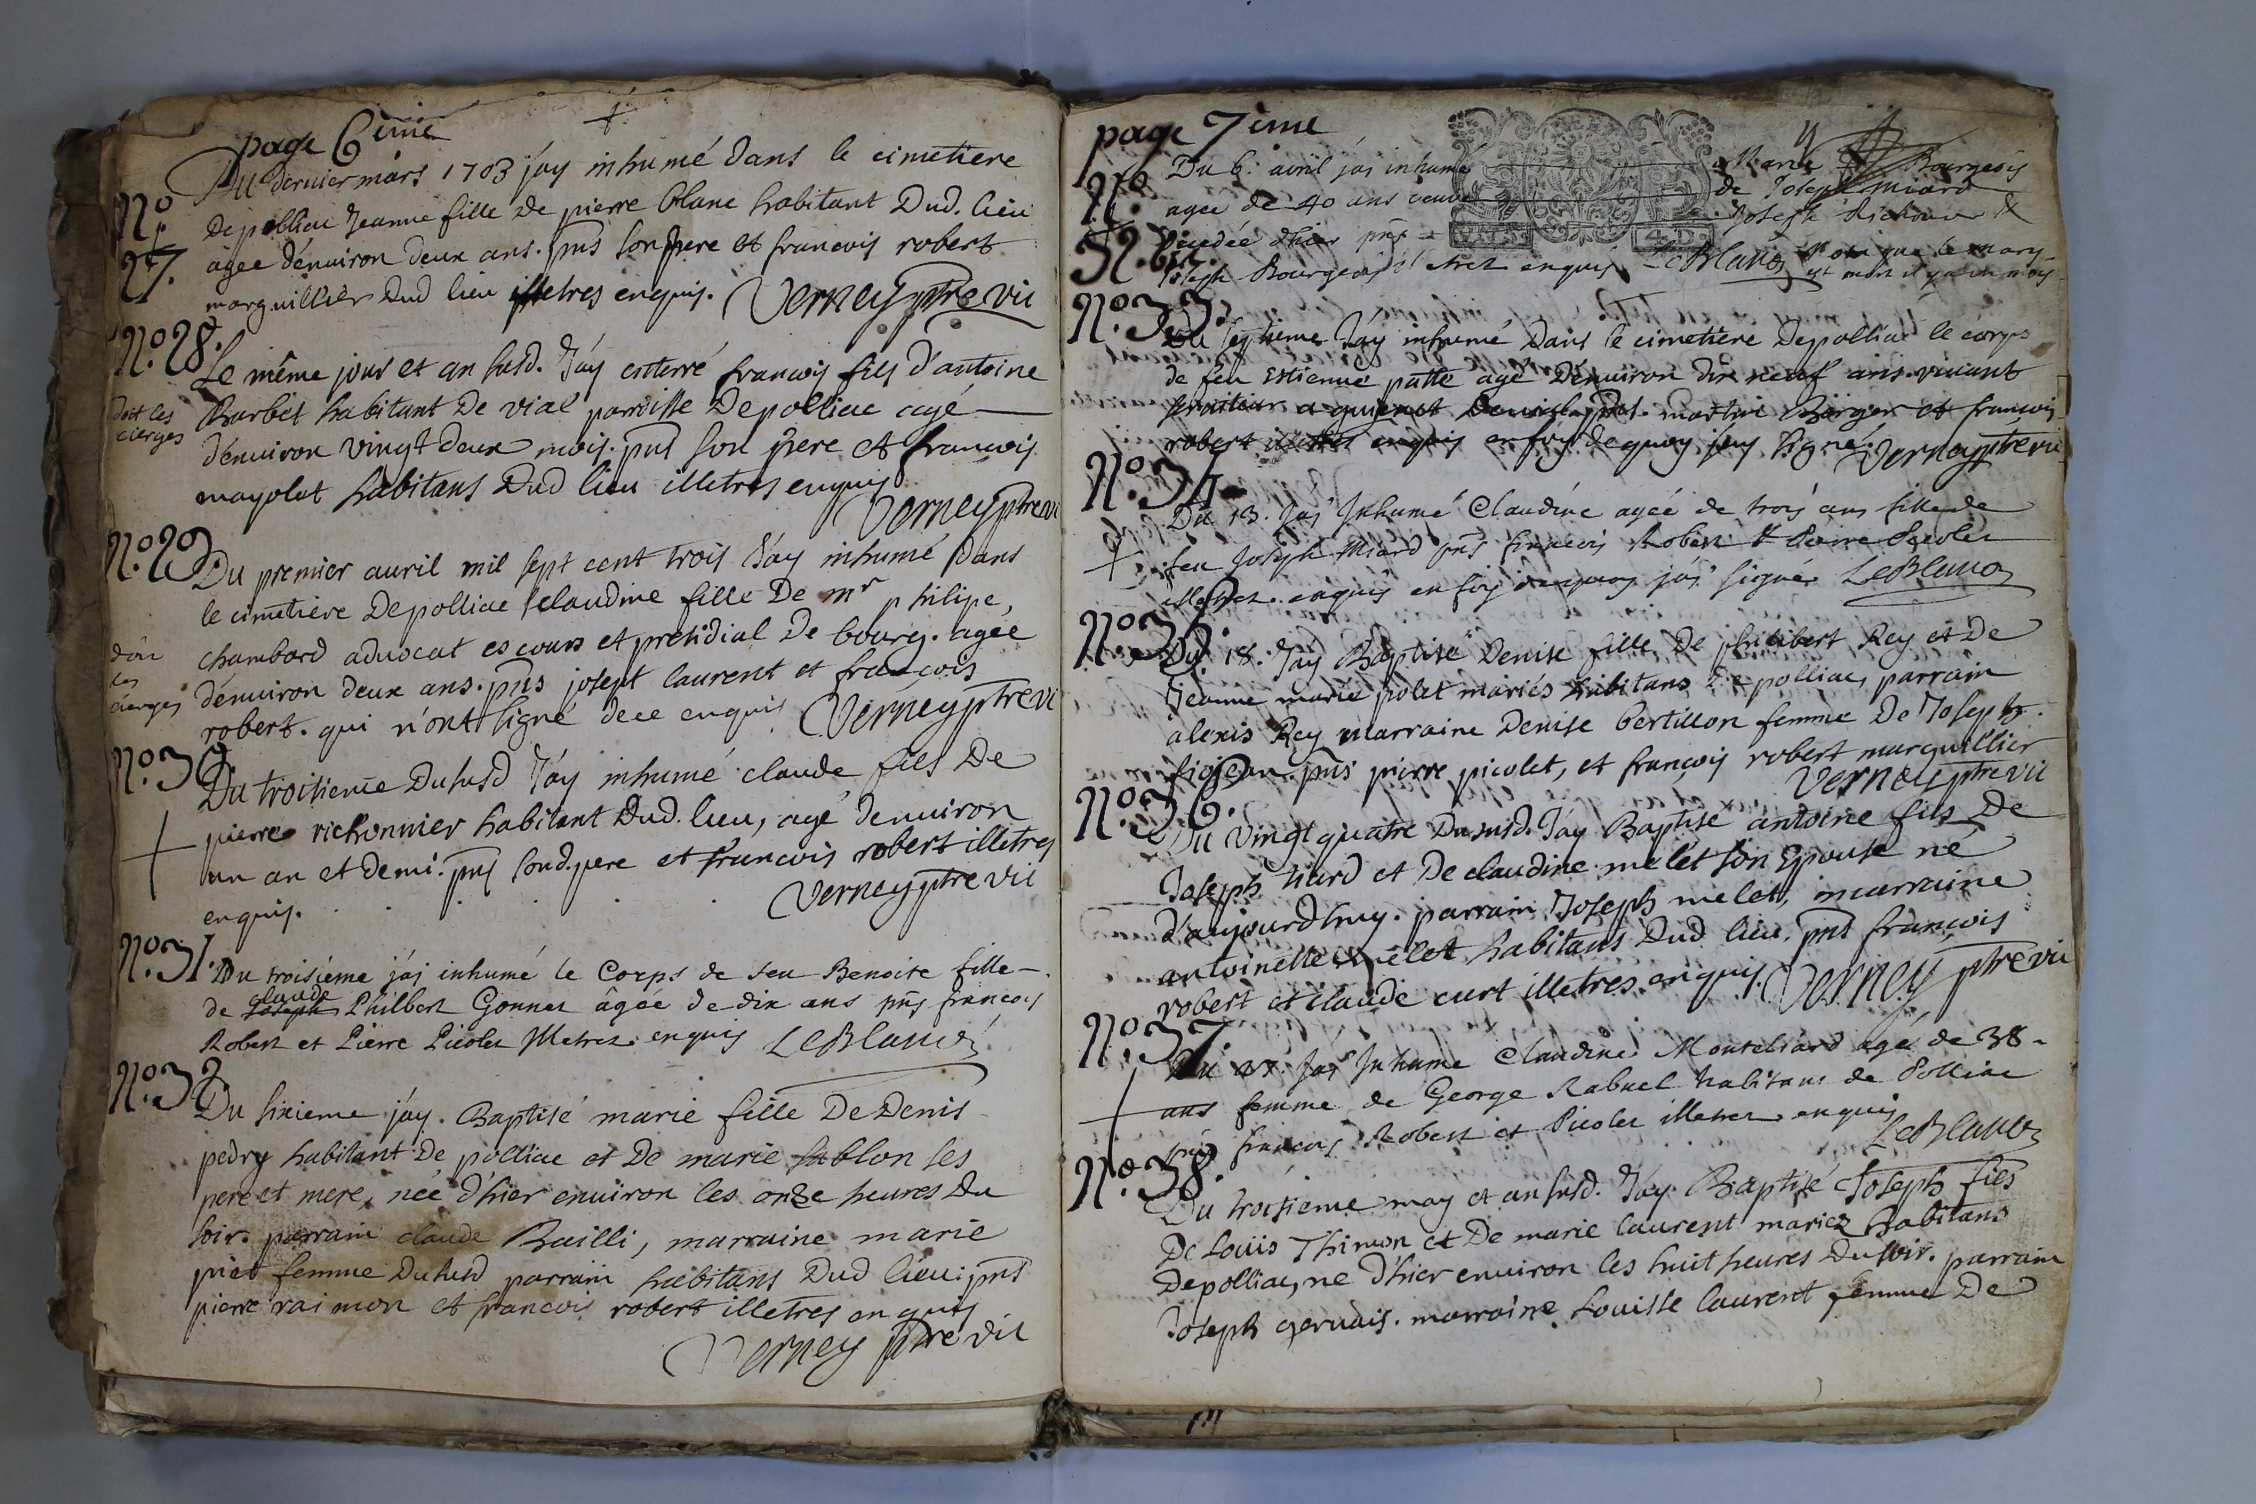 page 6ime
Du dernier mars 1703 j'ay inhumé dans le cimetiere
No 27.
Depolliac Jeanne fille De pierre blanc habitant Dud. lieu
agée d'énuiron deux ans. pns son pere et francois robert
marguillier Dud lieu illetres enquis. Verney ptre vic
No. 28.
Le même jour et an susd. J'ay enterré francois fils d'antoine
doit les cierges
Barbet habitant De vial parroisse Depolliac agé
d'énuiron vingt deux mois. pns son pere et françois
mayolet habitans Dud lieu illetres enquis
Verney ptre vi
No. 29
Du premier auril mil sept cent trois J'ay inhumé Dans
le cimetiere Depolliac claudine fille De mr philipe,
chambard aduocat es cours et presidial De bourg. agée
les cierges
d'énuiron deux ans. pns josept laurent et françois
robert. qui n'ont signé dece enquis Verney ptre vi
No. 30
Du troisieme Dususd J'ay inhumé claude fils De
pierre richonnier habitant Dud. lieu, agé denuiron
un an et demi. pns sond. pere et francois robert illetres
enquis. Verney ptre vic
No. 31.
Du troisième j'ai inhumé le Corps de feu Benoite fille
de Joseph claude Philbert Gonnet âgée de dix ans pns francois
Robert et Pierre Picolet illetrez enquis LeBlanc
No. 32
Du sixieme j'ay. Baptisé marie fille De Denis
pedry habitant De polliac et De marie sablon ses
pere et mere, née d'hier enuiron les onze heures Du
soir. parrain claude Bailli, marraine marie
piet femme Dususd parrain habitans Dud lieu: pns
pierre raimon et francois robert illetres enquis
Verney ptre vic
page 7ime
No 32. bis.
Du 6. avril jai inhumé Marie Bourgeois
agée de 40 ans veuve de Joseph Miard
décédée d'hier pns Joseph Richonier &
Joseph Bourgeois illetrez enquis LeBlanc Nota que le mary
est mort il y a un mois
No. 33.
Du septieme J'ay inhumé Dans le cimetiere Depolliac le corps
de feu Estienne patte agé D'énuiron dix neuf ans. viuant
martin Berger et francois
robert illetres enquis en foy dequoy j'ay signé. Verney ptre vic
No. 34
Du 13. Jai Inhumé Claudine agée de trois ans fille de
feu Joseph Miard pns francois Robert & Pierre Picolet
illetrez. enquis en foy dequoy jai signé LeBlanc
No. 35.
Du 18. J'ay Baptisé Denise fille De philibert Rey et De
Jeanne marie polet mariés habitans De polliac, parrain
alexis Rey marraine Denise bertillon femme De Joseph
pns pierre picolet, et françois robert marguillier
Verney ptre vic
No. 36.
Du vingt quatre Dususd. J'ay Baptisé antoine fils De
Joseph tiard et De claudine melet son Epouse né
d'aujourdhuy. parrain Joseph melet, marraine
antoinette melet habitans Dud lieu. pns francois
robert et claude curt illetres enquis. Verney ptre vic
No. 37
Du 27. Jai Inhumé Claudine Monteliard agé de 38
ans femme de George Rabuel habitant de Polliac
pns francois Robert et Picolet illetrez enquis
LeBlanc
No. 38.
Du troisieme may et an susd. J'ay Baptisé Joseph fils
De Louis Thimon et De marie laurent mariez habitans
Depolliac, né d'hier enuiron les huit heures Du soir. parrain
Joseph geruais. marraine Louisse laurent femme De